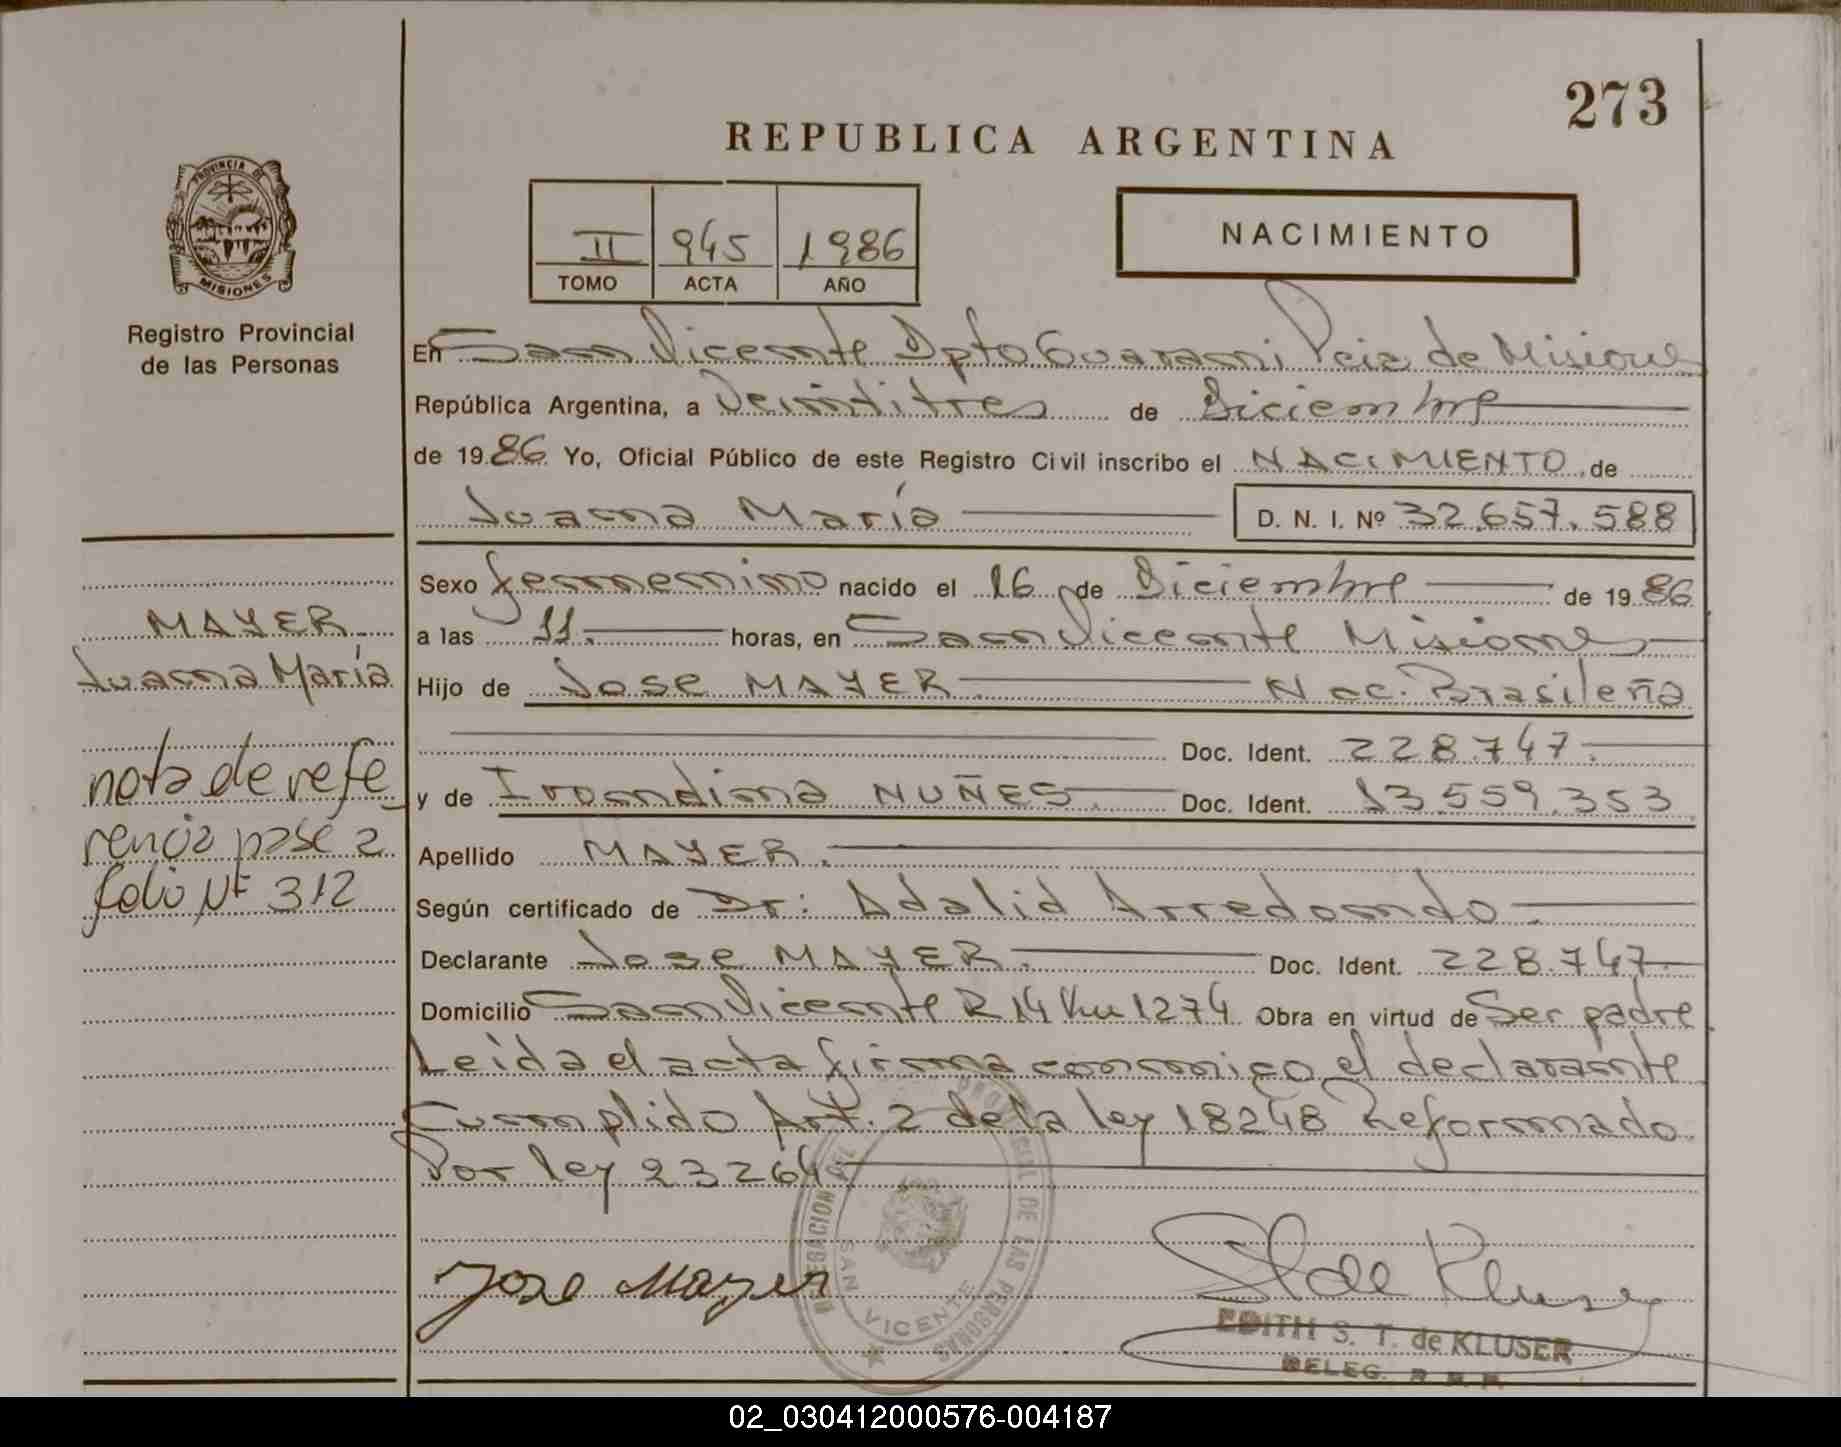 273
REPUBLICA ARGENTINA
PROVINCIA DE
MISIONES
Registro Provincial
de las Personas
II 945 1986
TOMO ACTA AÑO
NACIMIENTO
En San Vicente Dpto Guarani Pcia de Misiones
República Argentina, a Veintitres de Diciembre
de 1986 Yo, Oficial Público de este Registro Civil inscribo el NACIMIENTO de
Juana María D. N. I. Nº 32.657.588
Sexo femenino nacido el 16 de Diciembre de 1986
a las 11. horas, en San Vicente Misiones
Hijo de Jose MAYER Nac. Brasileña
Doc. Ident. 228.747.
y de Irondina NUÑES. Doc. Ident. 13.559.353
Apellido MAYER.
Según certificado de Dr: Adalid Arredondo.
Declarante Jose MAYER. Doc. Ident. 228.747.
Domicilio San Vicente R 14 Km 1274 Obra en virtud de Ser padre
Leida el acta firma conmigo el declarante
Cumplido Art. 2 de la ley 18248 Reformado
Por ley 23264.
MAYER
Juana María
nota de refe
rencia pase a
folio Nº 312
Jose Mayer
DELEGACION DEL PROVINCIAL DE LAS PERSONAS
SAN VICENTE
S T de Kluser
EDITH S. T. de KLUSER
DELEG. R. P. P.
02_030412000576-004187